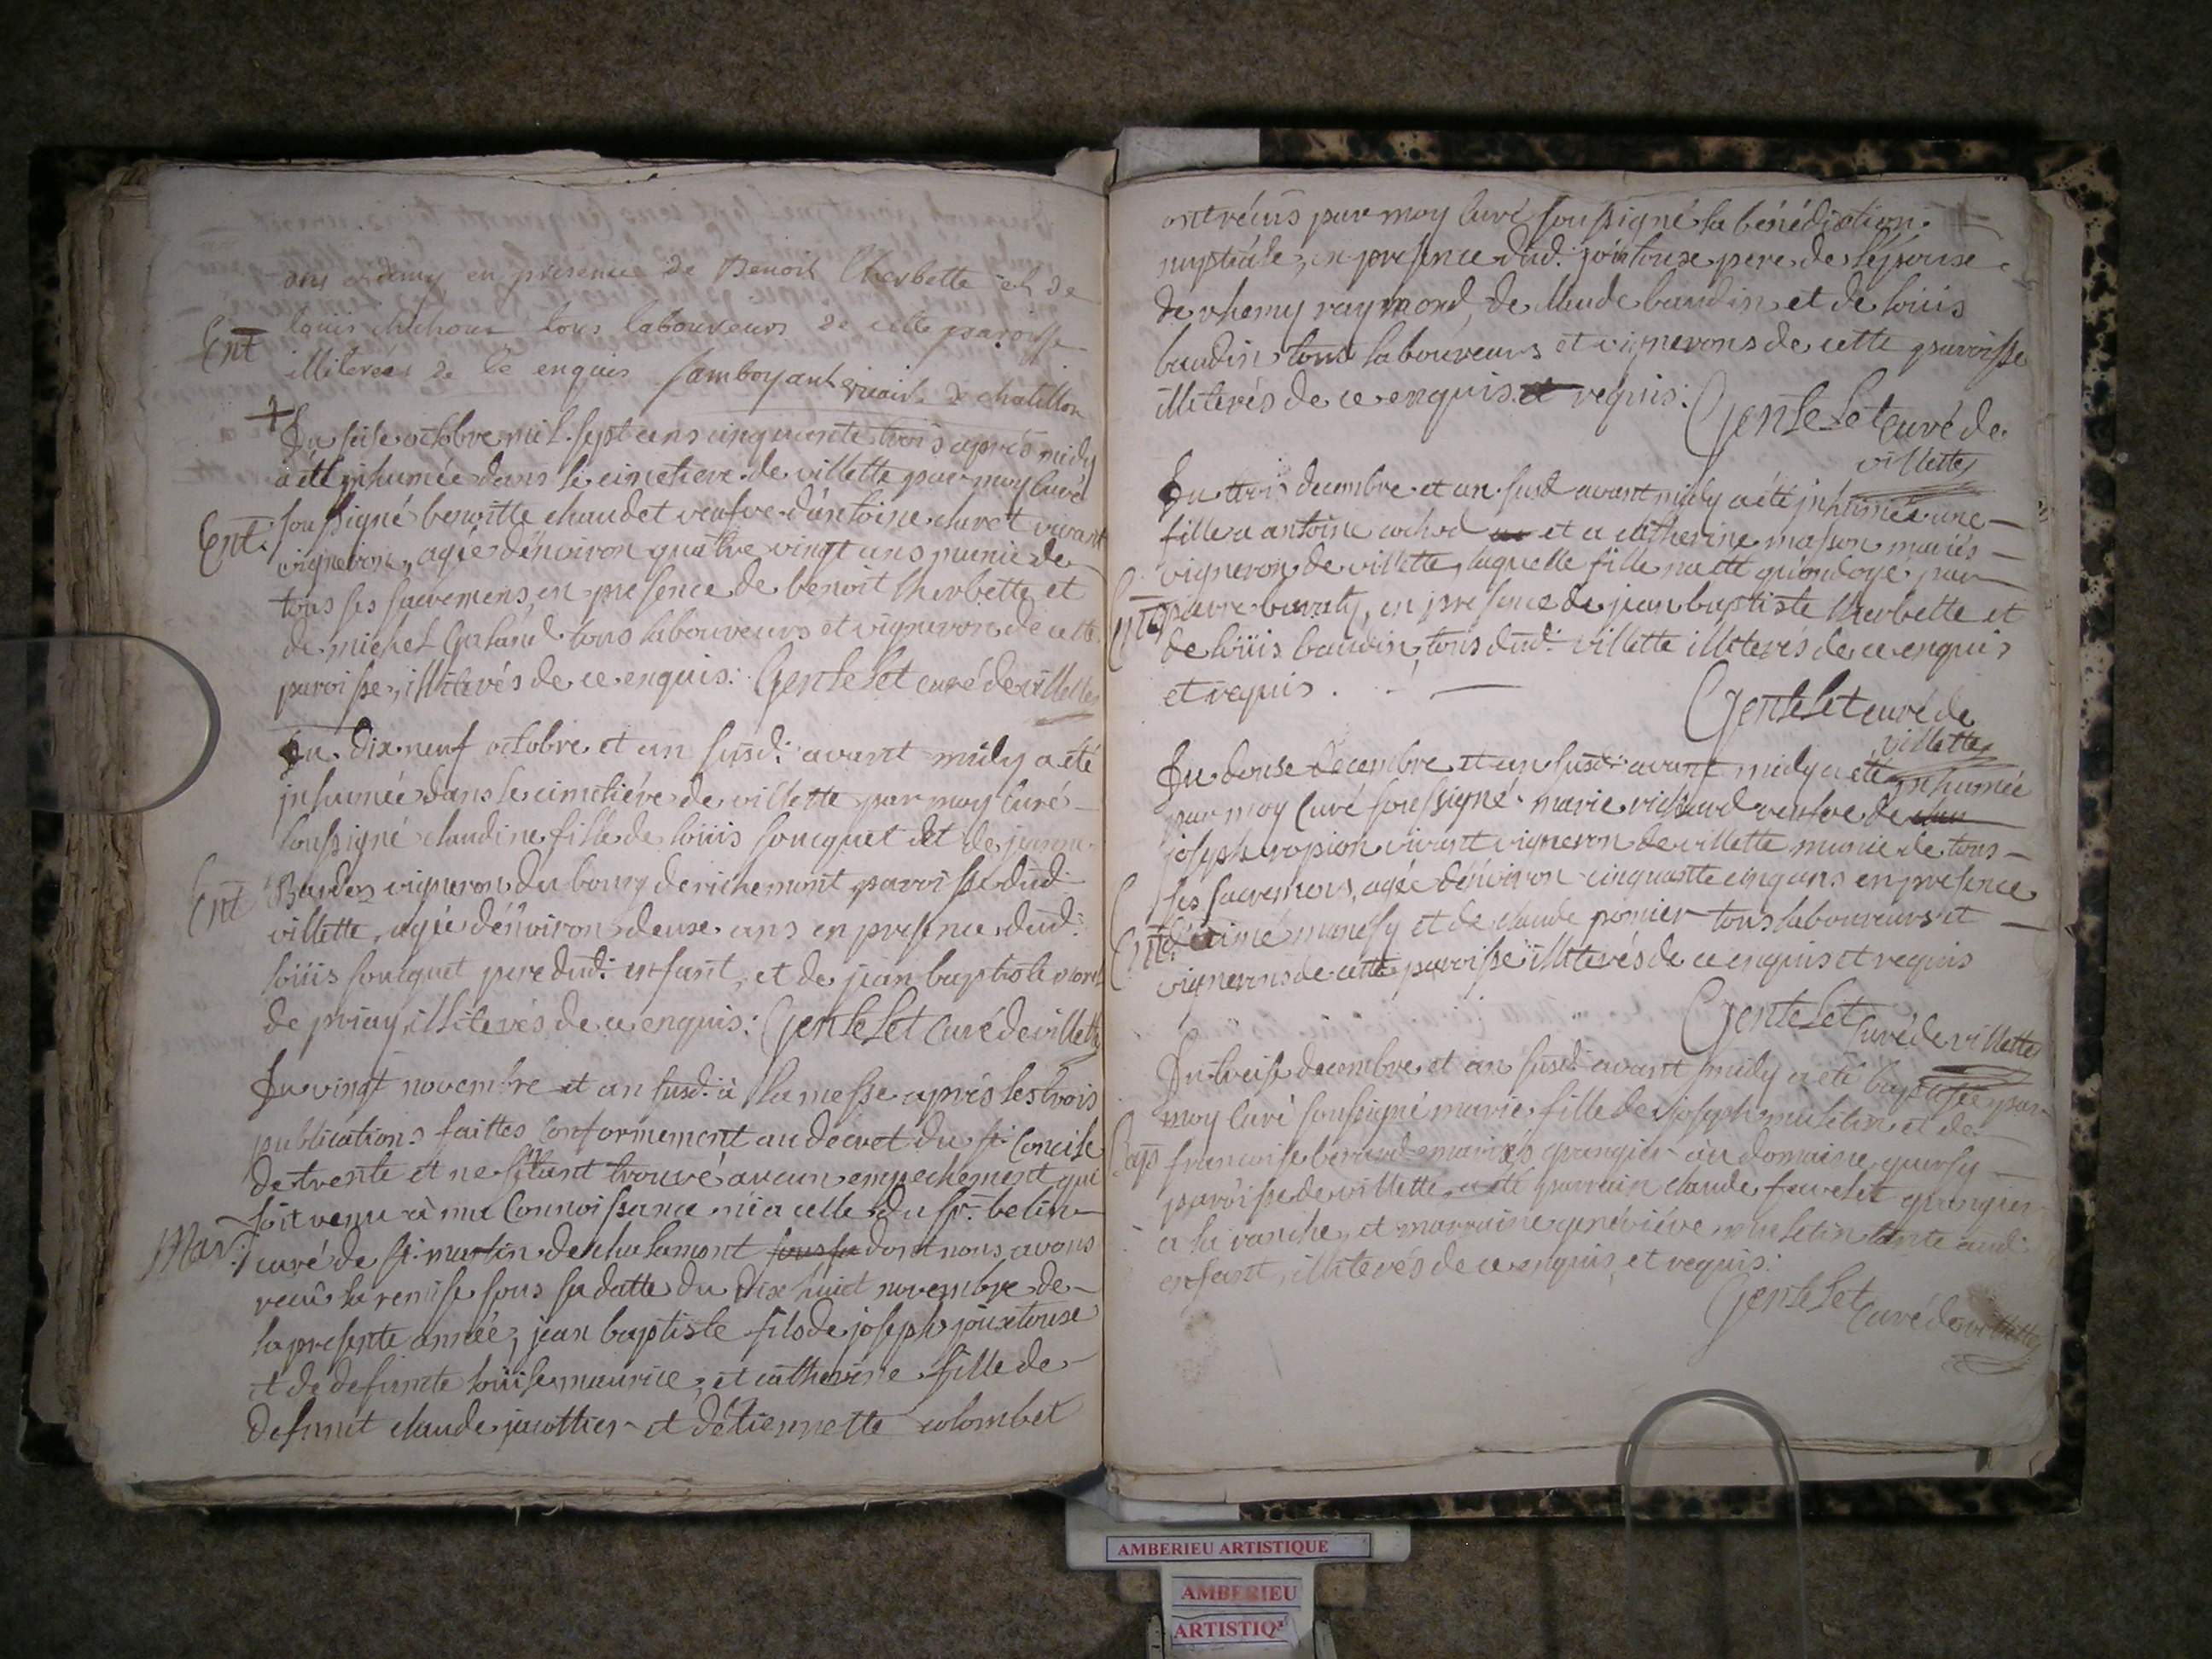 ans et demy en presence de Benoit Cherbette et de
Ent
louis chichoux tous laboureurs de cette paroisse
illiterées de Ce enquis Jamboyant vicair de chatillon
+
Du seise octobre mil sept cens cinquante trois aprés midy
a été inhumée dans le cimetiere de villette par moy Curé
Ent:
soussigné benoitte chaudet veufve d'antoine clavet vivant
vigneron, agée d'énviron quatre vingt ans munie de
tous ses sacremens, en presence de benoit Cherbette et
de michel Galand tous laboureurs et vigneron de cette
paroisse, illiterés de ce enquis: Gentelet curé de villette
Du dix neuf octobre et an susd: avant midy a été
jnhumée dans le cimetiére de villette par moy Curé
soussigné claudine fille de loüis foucquet et de jeanne
Ent
Bardoz vigneron du bourg de richemont paroisse dud:
villette, agée d'énviron deuse ans en presence dud:
loüis foucquet pere dud: enfant, et de jean baptiste
de priay illiterés de ce enquis: Gentelet Curé de villette
Du vingt novembre et an susd: à la messe aprés les trois
publications faittes Conformement au decret du st: Concile
de trente et ne s'étant trouvé aucun empechement qui
soit venu à ma Connoissance ni a celle du sr: belin
Mar:
curé de st: martin de chalamont sous sa dont nous avons
recû la remise sous sa datte du dix huit novembre de
la presente année, jean baptiste fils de joseph joüxtouse
et de defunte loüise maurice, et catherine fille de
defunt claude jacottier et d'étiennette colombet
ont récus par moy Curé soussigné la bénédiction
nuptiale, en presence dud: joüxtouse pere de l'épouse
de rhemy raymond, de Claude baudin et de loüis
baudin tous laboureurs et vignerons de cette paroisse
illiterés de ce enquis et requis:
Gentelet curé de
villette
Du trois decembre et an susd avant midy a été jnhumée une
fille a antoine cochod et a catherine masson mariés
vigneron de villette, laquelle fille na été qu'ondoyé par
Ent
pierre buvaty, en presence de jean baptiste Cherbette et
de loüis baudin, tous dud: villette illiterés de ce enquis
et requis.
Gentelet curé de
villette
Du douse decembre et an susd: avant midy a été inhumée
par moy Curé soussigné marie richard veufve de
joseph ropion vivant vigneron de villette munie de tous
ses sacremens, agée d'énviron cinquante cinq ans en presence
Ent:
d'aimé manessy et de claude pomier tous laboureurs et
vignerons de cette paroisse illiterés de ce enquis et requis
Gentelet
Curé de villette
Du treise decembre et an susd: avant midy a été baptisée par
moy Curé soussigné marie fille de joseph musletin et de
Bap
francoise berard mariés grangier au domaine quersy
paroisse de villette, a été parrain claude favelet grangier
a la ranche, et marraine genéviéve musletin tante aud:
enfant, illiterés de ce enquis et requis:
Gentelet
Curé de villette
AMBERIEU ARTISTIQUE
AMBERIEU
ARTISTIQ